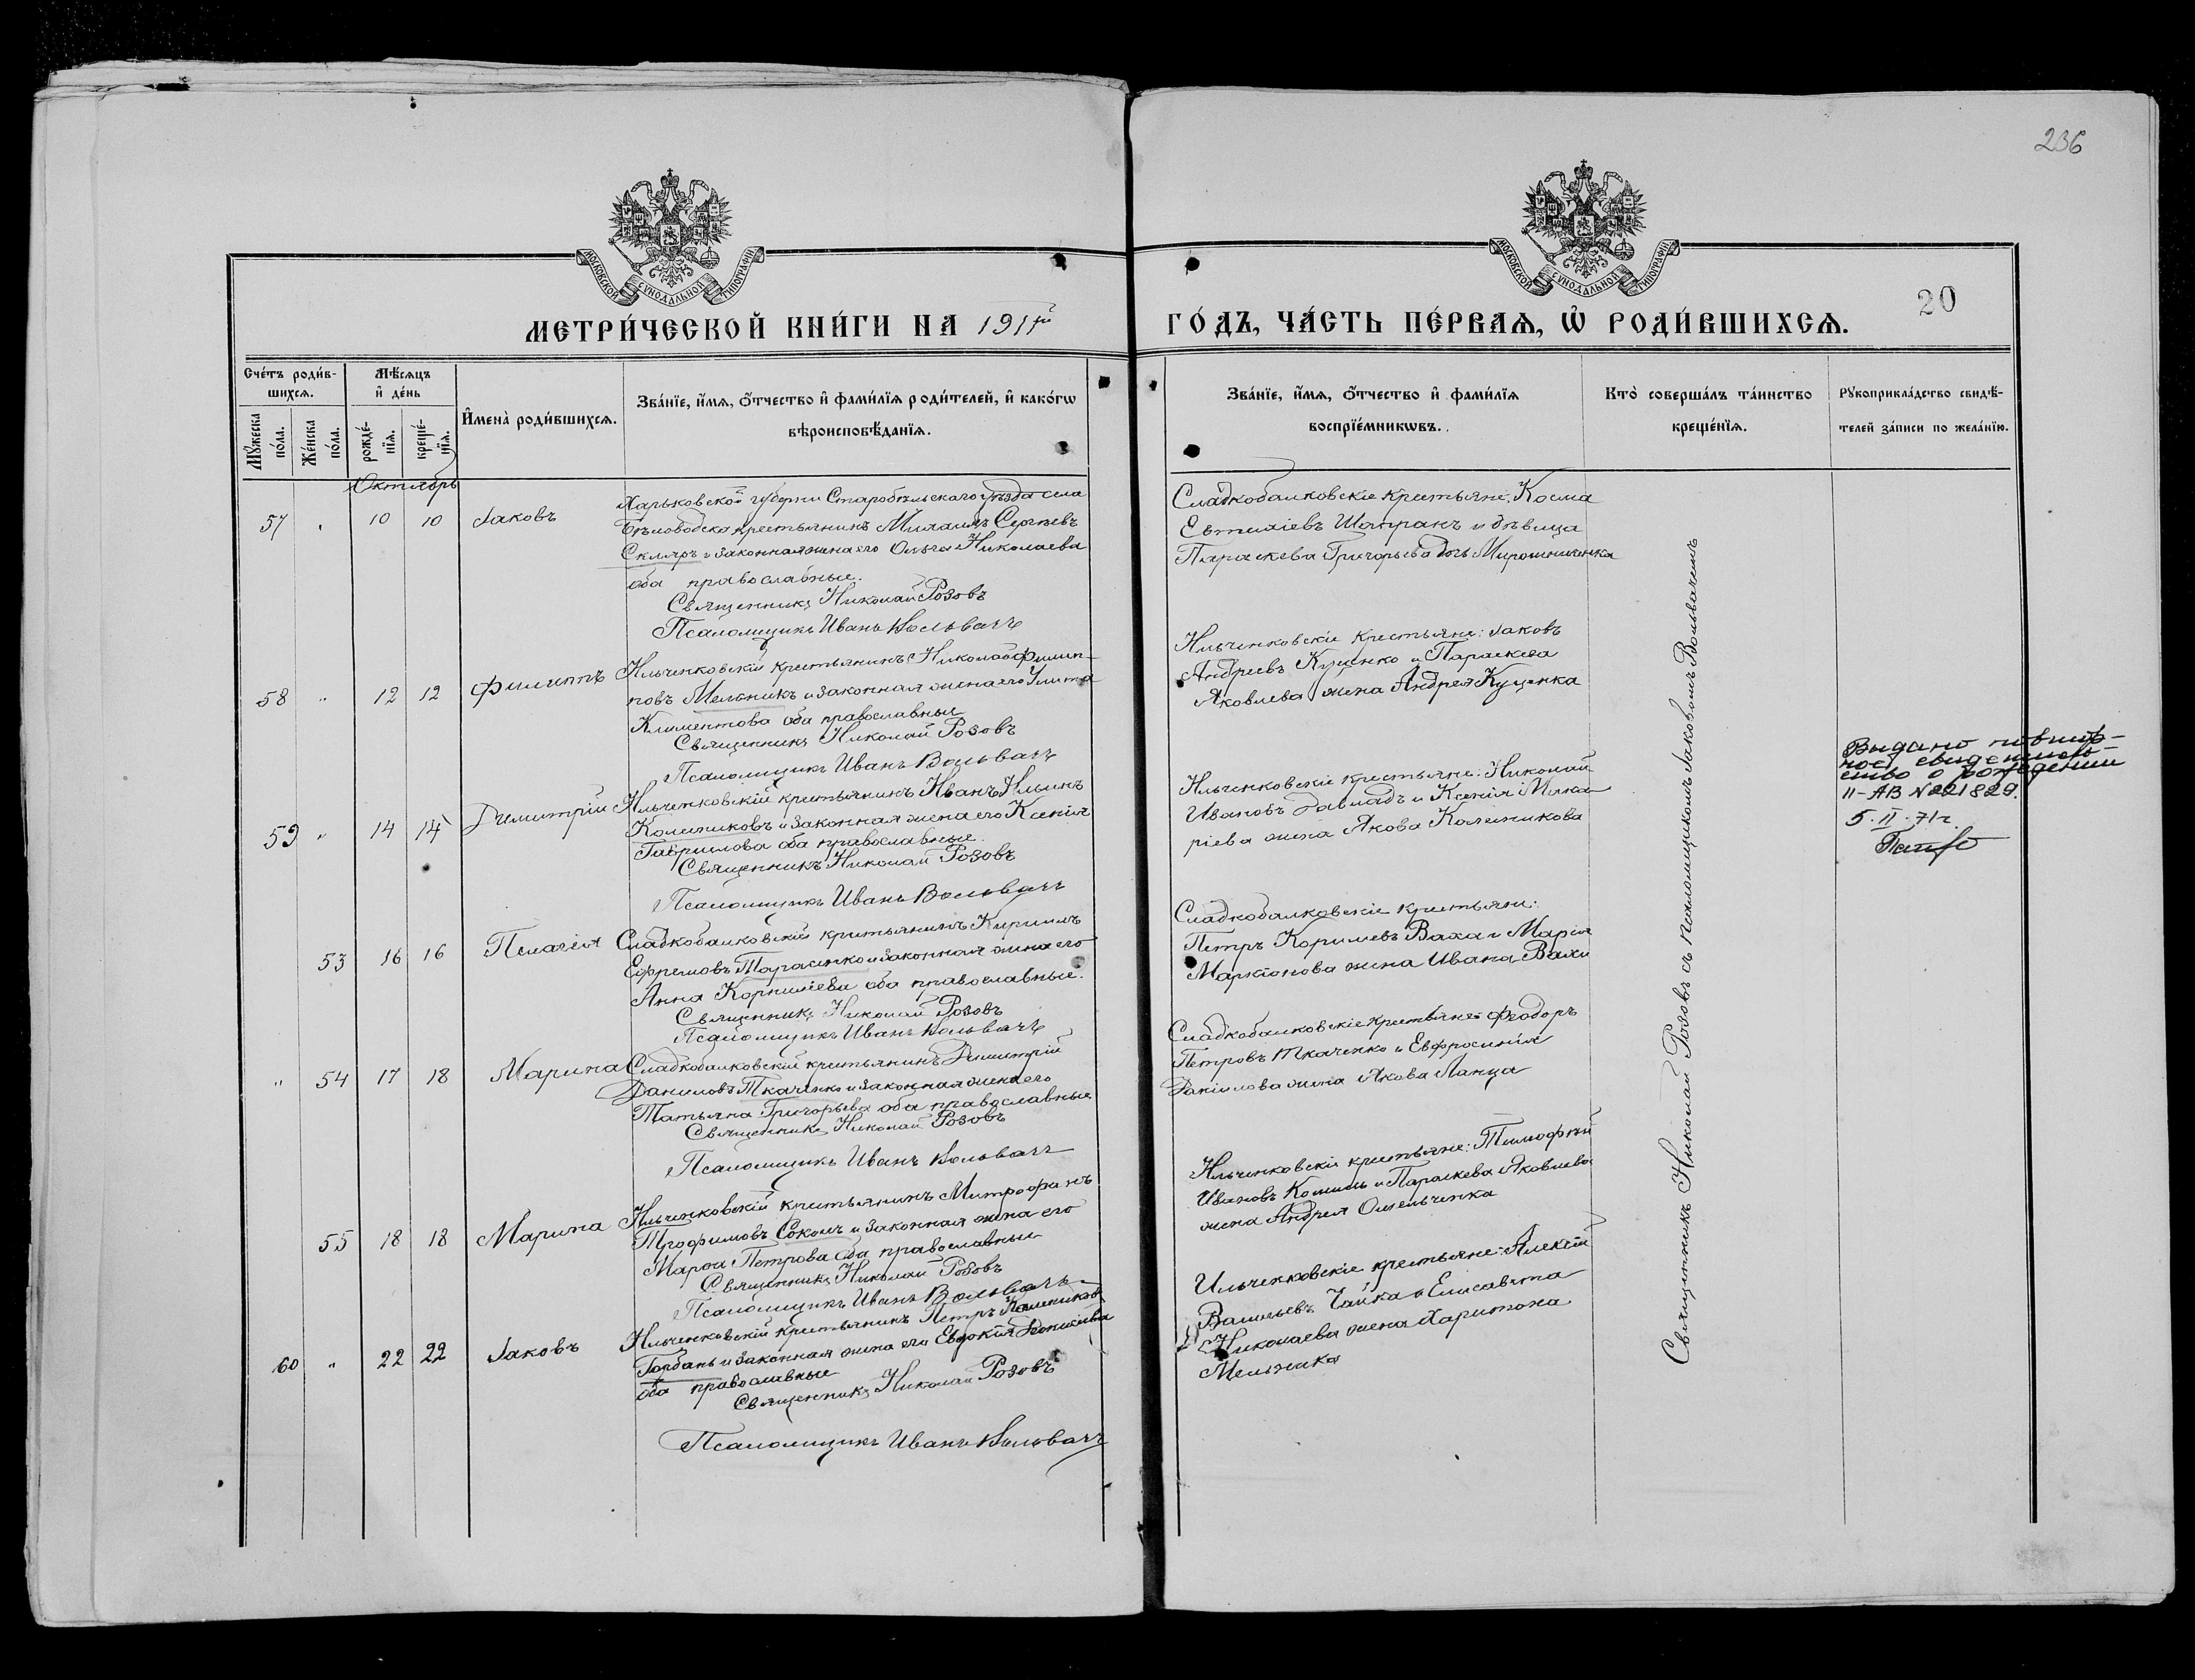 236
МОСКОВСКОЙ СУНОДАЛЬНОЙ ТИПОГРАФІИ
МОСКОВСКОЙ СУНОДАЛЬНОЙ ТИПОГРАФІИ
МЕТРИ́ЧЕСКОЙ КНИ́ГИ НА 1917й
ГО́ДЪ, ЧА́СТЬ ПЕ́РВАѦ, Ѡ РОДИ́ВШИХСѦ.
20
Сче́тъ роди́в-
шихсѧ.
Мꙋ́жеска по́ла.
Же́нска по́ла.
Мѣ́сѧцъ
и҆ де́нь
рожде́-
нїѧ.
креще́-
нїѧ.
И҆мена̀ роди́вшихсѧ.
Зва́нїе, и҆́мѧ, ѻ҆́тчество и҆ фами́лїѧ роди́телей, и҆ како́гѡ
вѣроисповѣ́данїѧ.
Зва́нїе, и҆́мѧ, ѻ҆́тчество и҆ фами́лїѧ
воспрїе́мникѡвъ.
Кто̀ соверша́лъ та́инство
креще́нїѧ.
Рꙋкоприкла́дство свидѣ́-
телей за́писи по жела́нїю.
Октябрь
57 " 10 10 Іаковъ
Харьковской губерни Старобѣльскаго уѣзда села
Бѣловодска крестьянинъ Михаилъ Сергѣевъ
Скляръ и законная жена его Ольга Николаева
оба православные.
Священникъ Николай Розовъ
Псаломщикъ Иванъ Вольвачъ
Сладкобалковскіе крестьяне: Косма
Евтихіевъ Шапранъ и дѣвица
Параскева Григорьева дочь Мирошниченка
58 " 12 12 Филиппъ
Ильченковскій крестьянинъ Николай Филип-
повъ Мельникъ и законная жена его Улита
Климентова оба православные
Священникъ Николай Розовъ
Псаломщикъ Иванъ Вольвачъ
Ильченковскіе крестьяне: Іаковъ
Андреевъ Куценко и Параскева
Яковлева жена Андрея Куценка
59 " 14 14 Димитрій
Ильченковскій крестьянинъ Иванъ Ильинъ
Колесниковъ и законная жена его Ксенія
Гавриилова оба православные.
Священникъ Николай Розовъ
Псаломщикъ Иванъ Вольвачъ
Ильченковскіе крестьяне: Николай
Ивановъ и Ксенія Мака-
ріева жена Якова Колесникова
Выдано повтор-
ное свидетель-
ство о рождении
II-АВ №221829.
5.II.71г.
53 16 16 Пелагія
Сладкобалковскій крестьянинъ Кириллъ
Ефремовъ Тарасенко и законная жена его
Анна Корниліева оба православные.
Священникъ Николай Розовъ
Псаломщикъ Иванъ Вольвачъ
Сладкобалковскіе крестьяне:
Петръ Корнилiевъ Ваха и Марія
Маркіанова жена Ивана Вахи
" 54 17 18 Марина
Сладкобалковскій крестьянинъ Димитрій
Даниловъ Ткаченко и законная жена его
Татьяна Григорьева оба православные
Священникъ Николай Розовъ
Псаломщикъ Иванъ Вольвачъ
Сладкобалковскіе крестьяне: Феодоръ
Петровъ Ткаченко и Евфросинія
Даніилова жена Якова Ланца
55 18 18 Марина
Ильченковскій крестьянинъ Митрофанъ
Трофимовъ Соколъ и законная жена его
Марѳа Петрова оба православные
Священникъ Николай Розовъ
Псаломщикъ Иванъ Вольвачъ
Ильченковскіе крестьяне: Тимофей
Ивановъ и Параскева Яковлева
жена Андрея Омельченка
60 " 22 22 Іаковъ
Ильченковскій крестьянинъ Петръ
Горбань и законная жена его Евдокія
оба православные
Священникъ Николай Розовъ
Псаломщикъ Иванъ Вольвачъ
Ильченковскіе крестьяне: Алексій
Васильевъ Чайка и Елисавета
Николаева жена Харитона
Мельника
Священникъ Николай Розовъ съ псаломщикомъ Іаковомъ Вольвачемъ